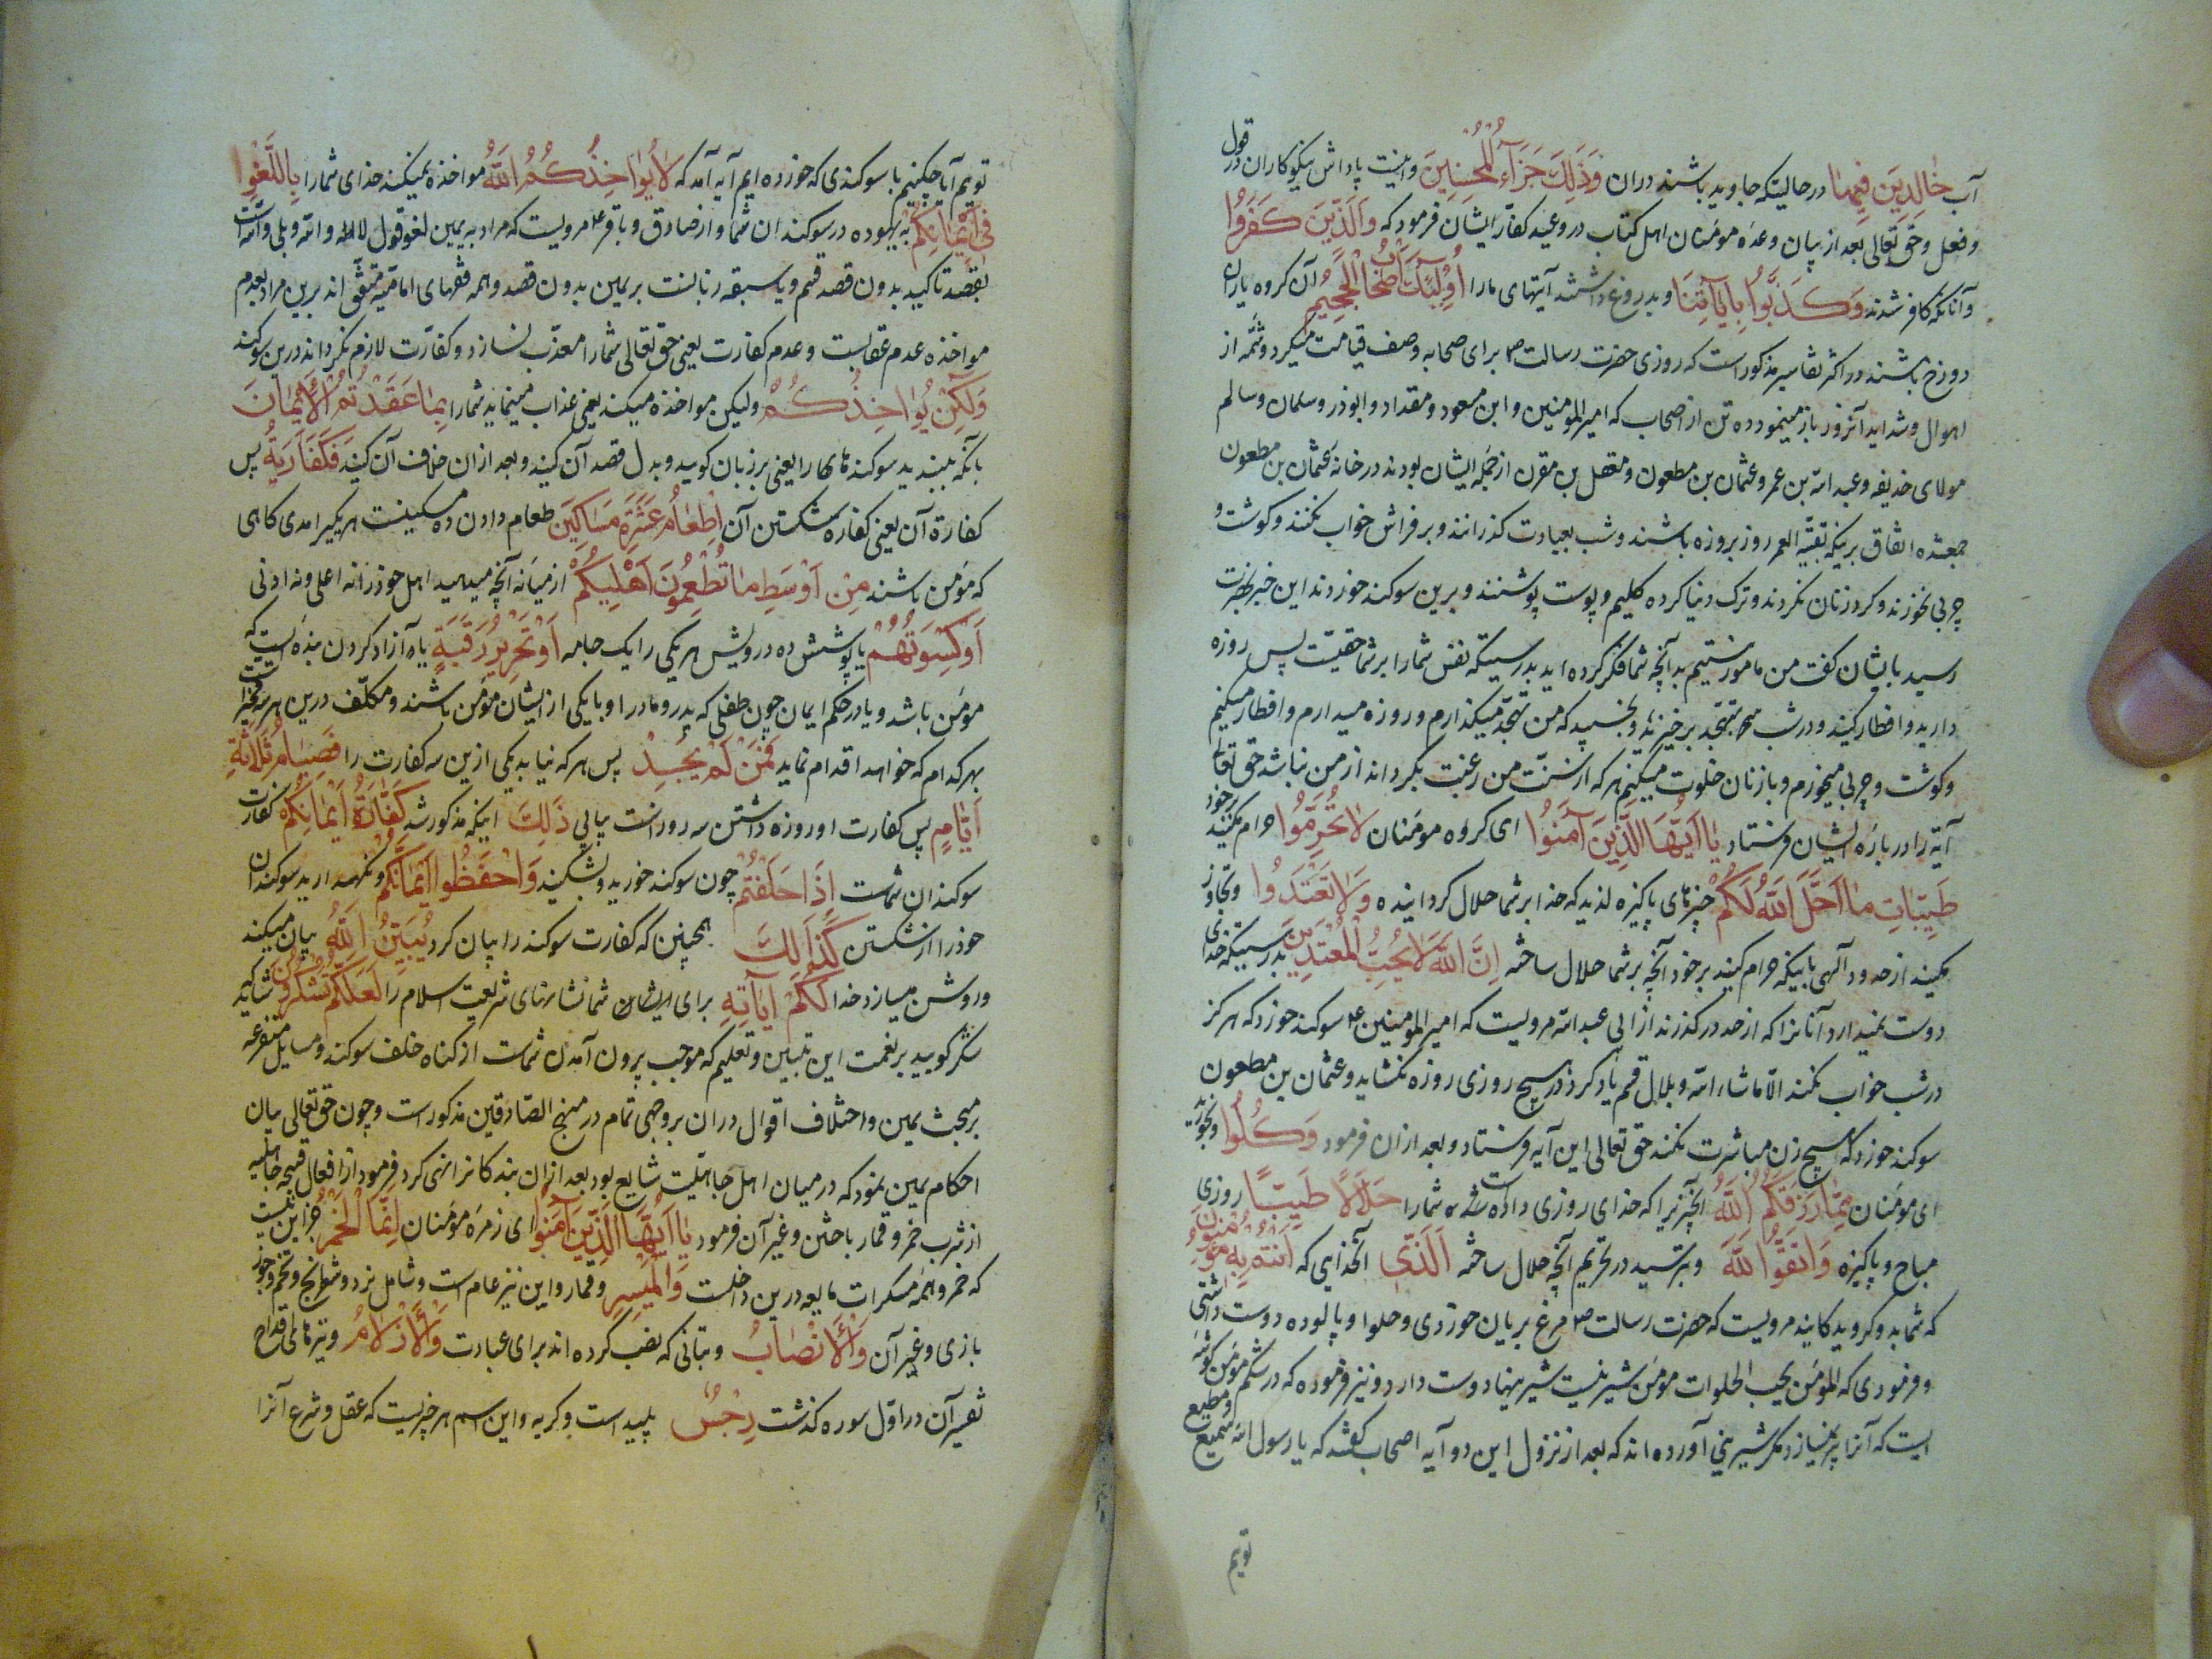 آب خالِدِینَ فیها در حالیتکه جاوید باشند دران وَذلِكَ جَزَآءُ الْمُحْسِنِینَ واینست پاداش نیکوکاران در قول
و فعل و حق تعالی بعد از بیان وعده مومنان اهل کتاب در وعید کفار ایشان فرمود که وَالَّذِینَ کَفَرُوا
وآنانکه کافر شدند وَکَذَّبُوا بِایاتِنا وبدروغ داشتند آیتهای مارا اُولئِكَ اَصْحابُ الْجَحیمِ آن گروه یاران
دوزخ باشند در اکثر تفاسیر مذکور است که روزی حضرت رسالت ص برای صحابه وصف قیامت میکرد و شمه از
اهوال و شداید آنروز باز مینمود ده تن از اصحاب که امیر المومنین و ابن مسعود و مقداد و ابوذر و سلمان و سالم
مولای حذیفه و عبد الله بن عمر و عثمان بن مطعون و معقل بن مقرن از جمله ایشان بودند در خانه عثمان بن مطعون
جمع شده اتفاق برینکه بقیة العمر روز بروزه باشند و شب بعبادت گذرانند و بر فراش خواب نکنند و گوشت و
چربی نخورند و گرد زنان نگردند و ترک دنیا کرده گلیم و پوست پوشند و برین سوکند خوردند این خبر بحضرت
رسید بایشان گفت من مامور نیستم بدآنچه شما فکر کرده اید بدرستیکه نفس شما را بر شما حقیت پس روزه
دارید و افطار کنید و در شب بتهجد برخیزید و بخسپید که من تهجد میگذارم و روزه میدارم و افطار میکنم
وکوشت و چربی میخورم و بازنان خلوت میکنم هر که از سنت من رغبت بگرداند از من نباشد حق تعالی
آیة را درباره ایشان فرستاد یا اَیُّهَا الَّذینَ آمَنُوا ای گروه مومنان لا تُحَرِّمُوا حرام مکنید بر خود
طَیِّباتِ ما اَحَلَّ اللهُ لَکُمْ چیزهای پاکیزه لذیذ که خدا بر شما حلال گردانیده وَلا تَعْتَدُوا وتجاوز
مکنید از حدود آلهی باینکه حرام کنید بر خود آنچه بر شما حلال ساخته اِنَّ اللهَ لا یُحِبُّ الْمُعْتَدینَ بدرستیکه خدای
دوست نمیدارد آنانرا که از حد در گذرند از ابی عبد الله مرویست که امیر المومنین ع سوکند خورد که هرگز
در شب خواب نکند الا ماشاء الله و بلال قسم یاد کرد که هیچ روزی روزه نگشاید و عثمان بن مطعون
سوکند خورد که هیچ زن مباشرت نکند حق تعالی این آیه فرستاد و بعد ازان فرمود وَکُلُوا وبخورید
ای مومنان مِمّا رَزَقَکُمُ اللهُ آنچیزیرا که خدای روزی داده است شمارا حَلالًا طَیِّبًا روزی
مباح و پاکیزه وَاتَّقُوا اللهَ وبترسید در تحریم آنچه حلال ساخته اَلَّذی آنخدایی که اَنْتُمْ بِه مُؤْمِنُونَ
که شما بدو گرویدگانید مرویست که حضرت رسالت ص مرغ بریان خوردی و حلوا و پالوده دوست داشتی
و فرمودی که المؤمن یحب الحلوات مومن شیرینست شیرینیها دوست دارد و نیز فرموده که در شکم مومن گوشه
ایست که آنرا پر نسازد مگر شیرینی آورده اند که بعد از نزول این دو آیه اصحاب گفتند که یا رسول الله سمیع و مطیع
تویم
تویم آیا چکنیم با سوکندی که خورده ایم آیه آمد که لا یُؤاخِذُکُمُ اللهُ مواخذه نمیکند خدای شمارا بِاللَّغْوِ
فی اَیْمانِکُمْ به بیهوده در سوکندان شما و از صادق و باقر ع مرویست که مراد به یمین لغو قول لا والله و بلی والله است
بقصد تاکید بدون قصد قسم و یا سبقه زبانست بر یمین بدون قصد و همه فقهای امامیه متفق اند برین مراد بعدم
مواخذه عدم عقابست و عدم کفارت یعنی حق تعالی شمارا معذب نسازد و کفارت لازم نگرداند درین سوکند
وَلکِنْ یُؤاخِذُکُمْ ولیکن مواخذه میکند یعنی عذاب مینماید شمارا بِما عَقَّدْتُمُ الْاَیْمانَ
بآنکه ببندید سوکندها را یعنی بر زبان کویید و بدل قصد آن کنید و بعد ازان خلاف آن کنید فَکَفّارَتُهُ پس
کفارة آن یعنی کفاره شکستن آن اِطْعامُ عَشَرَةِ مَساکینَ طعام دادن ده مسکینست هر یکیرا مدی کاهی
که مومن باشند مِنْ اَوْسَطِ ما تُطْعِمُونَ اَهْلیکُمْ از میانه آنچه میدهید اهل خود را نه اعلی و نه ادنی
اَوْ کِسْوَتُهُمْ یا پوشش ده درویش هر یکی را یک جامه اَوْ تَحْریرُ رَقَبَةٍ یا آزاد کردن بنده ایست که
مومن باشد و یا در حکم ایمان چون طفلی که پدر و مادر او یا یکی از ایشان مومن باشند و مکلف درین هر سه مخیر است
بهر کدام که خواهد اقدام نماید فَمَنْ لَمْ یَجِدْ پس هر که نیابد یکی ازین سه کفارت را فَصِیامُ ثَلاثَةِ
اَیّامٍ پس کفارت او روزه داشتن سه روز است پیاپی ذلِكَ اینکه مذکور شد کَفّارَةُ اَیْمانِکُمْ کفارت
سوکندان شماست اِذا حَلَفْتُمْ چون سوکند خورید و بشکنید وَاحْفَظُوا اَیْمانَکُمْ ونگهدارید سوکندان
خود را از شکستن کَذلِكَ همچنین که کفارت سوکند را بیان کرد یُبَیِّنُ اللهُ بیان میکند
و روشن میسازد خدا لَکُمْ ایاتِه برای شما نشانهای شریعت اسلام را لَعَلَّکُمْ تَشْکُرُونَ شاید که
شکر کویید بر نعمت این تبیین و تعلیم که موجب بیرون آمدن شماست از کناه خلف سوکند و مسایل متفرعه
بر مبحث یمین و اختلاف اقوال دران بر وجهی تمام در منهج الصادقین مذکور است و چون حق تعالی بیان
احکام یمین نمود که در میان اهل جاهلیت شایع بود بعد ازان بندکانرا نهی کرد از افعال قبیحه جاهلیه
از شرب خمر و قمار باختن و غیر آن فرمود یا اَیُّهَا الَّذینَ آمَنُوا ای زمره مومنان اِنَّمَا الْخَمْرُ جز این نیست
که خمر و همه مسکرات مایعه درین داخلست وَالْمَیْسِرُ وقمار و این نیز عام است و شامل نرد و شطرنج و تخم و جوز
بازی و غیر آن وَالْاَنْصابُ وبتانی که نصب کرده اند برای عبادت وَالْاَزْلامُ وتیرهای اقداح
تفسیر آن در اول سوره گذشت رِجْسٌ پلید است و کریه و این اسم هر چیزیست که عقل و شرع آنرا